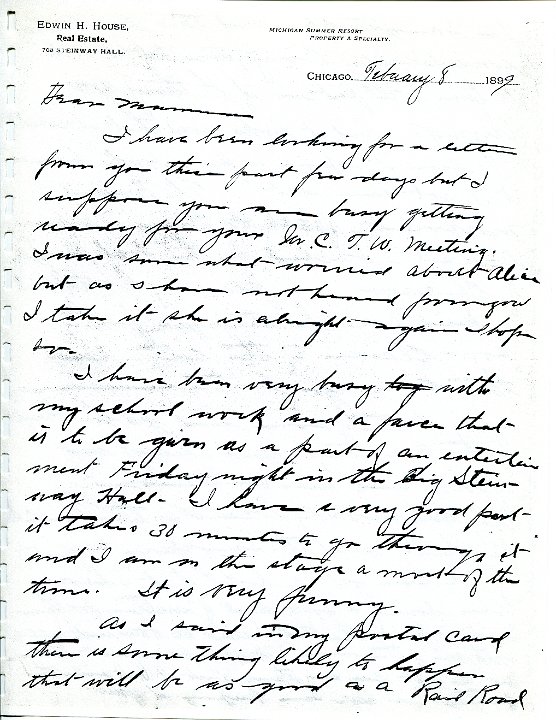 EDWIN H. HOUSE,
Real Estate,
703 STEINWAY HALL.
MICHIGAN SUMMER RESORT
PROPERTY A SPECIALTY.
CHICAGO, February 8 1899
Dear Mamma
I have been looking for a letter
from you this past few days but I
suppose you are busy getting
ready for your W. C. T. U. Meeting.
I was some what worried about Alice
but as I have not heard from you
I take it she is alright again I hope
so.
I have been very busy with
my school work and a farce that
is to be given as a part of an entertain
ment Friday night in the Big Stein-
way Hall. I have a very good part
it takes 30 minutes to go through it
and I am on the stage most of the
time. It is very funny.
As I said in my postal card
there is some thing likely to happen
that will be as good as a Rail Road